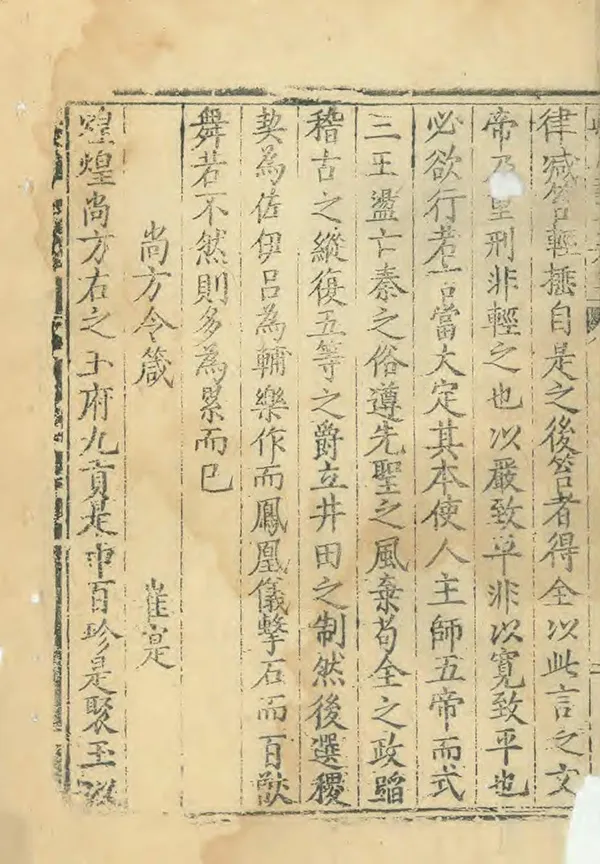 律減笞輕捶自是之後笞者得全以此言之文
帝乃重刑非輕之也以嚴致平非以寬致平也
必欲行若言當大定其本使人主師五帝而式
三王盪亡秦之俗遵先聖之風棄苟全之政蹈
稽古之縱復五等之爵立井田之制然後選稷
契為佐伊呂為輔樂作而鳳凰儀擊石而百獸
舞若不然則多為累而已
尚方令箴 崔寔
煌煌尚方右之王府九貢是百珍是聚玉